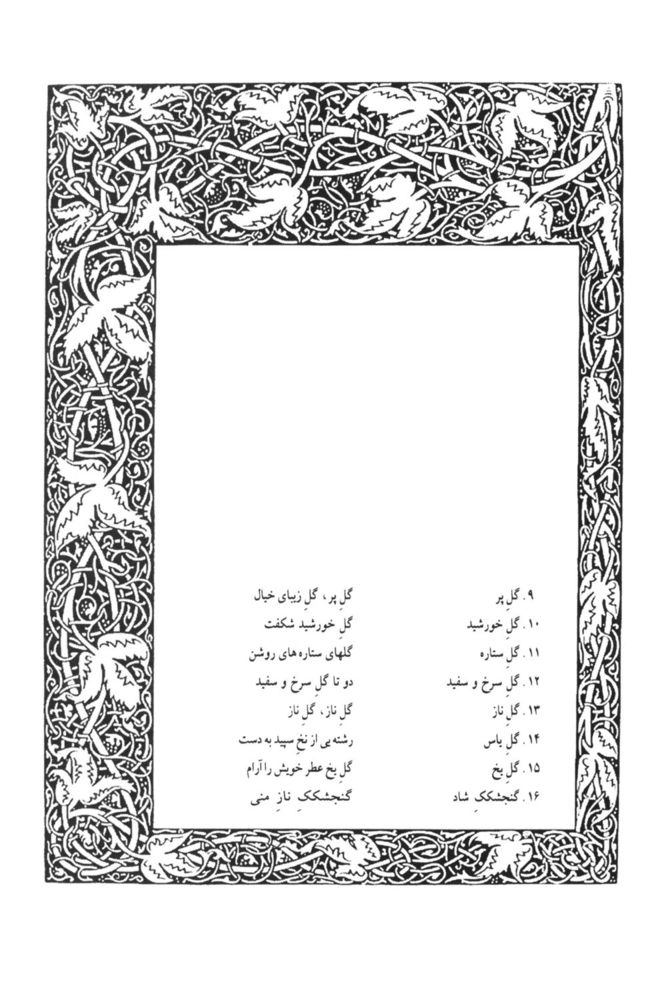 ۹. گلِ پر گلِ پر، گلِ زیبای خیال
۱۰. گلِ خورشید گلِ خورشید شکفت
۱۱. گلِ ستاره گلهای ستاره های روشن
۱۲. گلِ سرخ و سفید دو تا گلِ سرخ و سفید
۱۳. گلِ ناز گلِ ناز، گلِ ناز
۱۴. گلِ یاس رشته یی از نخِ سپید به دست
۱۵. گلِ یخ گلِ یخ عطر خویش را آرام
۱۶. گنجشککِ شاد گنجشککِ نازِ منی